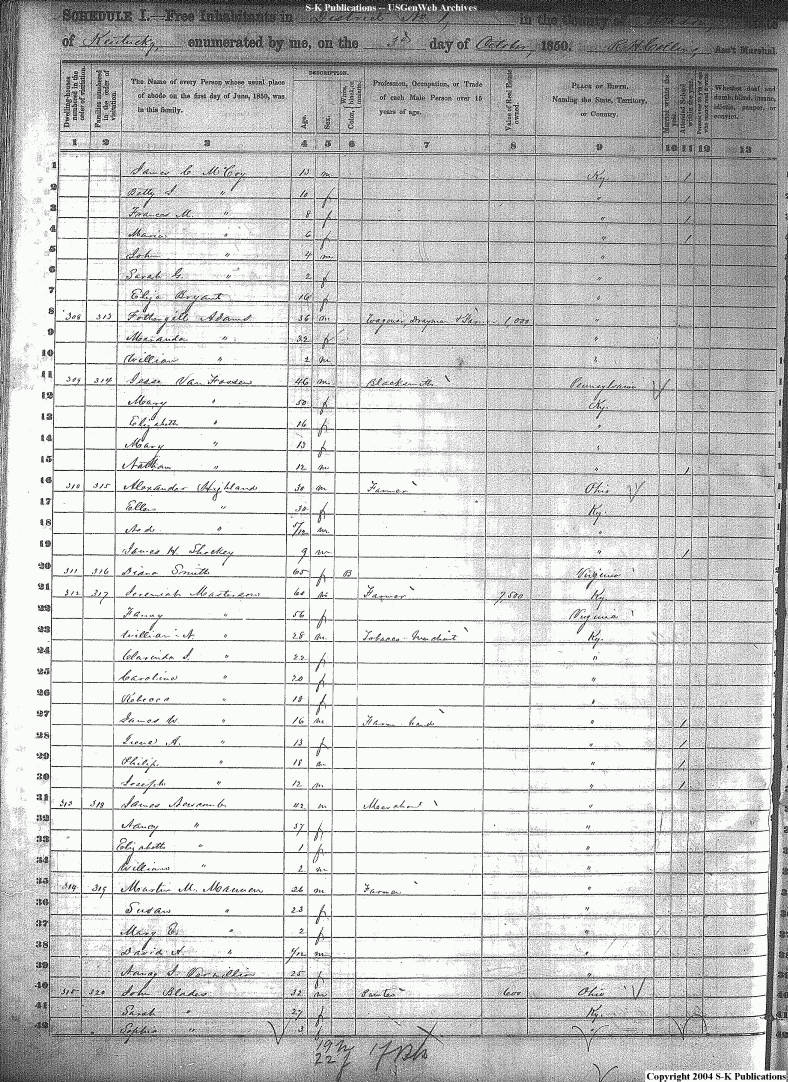 S-K Publications -- USGenWeb Archives
SCHEDULE I.—Free Inhabitants in District No. 1 in the County of
of Kentucky, enumerated by me, on the 3d day of October, 1850. Ass't Marshal.
DESCRIPTION.
Dwelling-houses numbered in the order of visitation. Families numbered in the order of visitation. The Name of every Person whose usual place of abode on the first day of June, 1850, was in this family. Age. Sex. Profession, Occupation, or Trade of each Male Person over 15 years of age. Value of Real Estate owned. PLACE OF BIRTH. Naming the State, Territory, or Country. Married within the year. Whether deaf and dumb, blind, insane, idiotic, pauper, or convict.
1 2 3 4 5 6 7 8 9 10 11 12 13
1 James C. McCoy 13 m Ky. /
2 Betty S. " 10 f " /
3 Frances M. " 8 f " /
4 Maria " 6 f " /
5 John " 4 m "
6 Sarah G. " 2 f "
7 Eliza Bryant 14 f "
8 308 313 Adams 36 m 1,000 "
9 " 32 f "
10 William " 2 m "
11 309 314 Jesse Van 46 m Blacksmith Pennsylvania
12 Mary " 50 f Ky.
13 Elizabeth " 16 f "
14 Mary " 13 f "
15 Nathan " 12 m " /
16 310 315 Alexander Highland 30 m Farmer Ohio
17 Ellen " 30 f Ky.
18 " m "
19 James H. Shockey 9 m " /
20 311 316 Diana Smith 65 f B Virginia
21 312 317 Jeremiah Masterson 60 m Farmer 7,500 Ky.
22 Fanny " 56 f Virginia
23 William A. " 28 m Tobacco Merchant Ky.
24 Clarinda S. " 22 f "
25 Caroline " 20 f "
26 Rebecca " 18 f "
27 James W. " 16 m Farm hand " /
28 A. " 13 f " /
29 Philip " 18 m " /
30 Joseph " 12 m " /
31 313 318 James 42 m Merchant "
32 Nancy " 37 f "
33 Elizabeth " 1 f "
34 William " 2 m "
35 314 319 Martin M. Mannen 26 m Farmer "
36 Susan " 23 f "
37 Mary E. " 2 f "
38 David A. " m "
39 Nancy S. Vermillion 25 f "
40 315 320 John Blades 32 m 600 Ohio
41 Sarah " 27 f Ky.
42 Sophia " 3 f "
19 m
22 f
Copyright 2004 S-K Publications